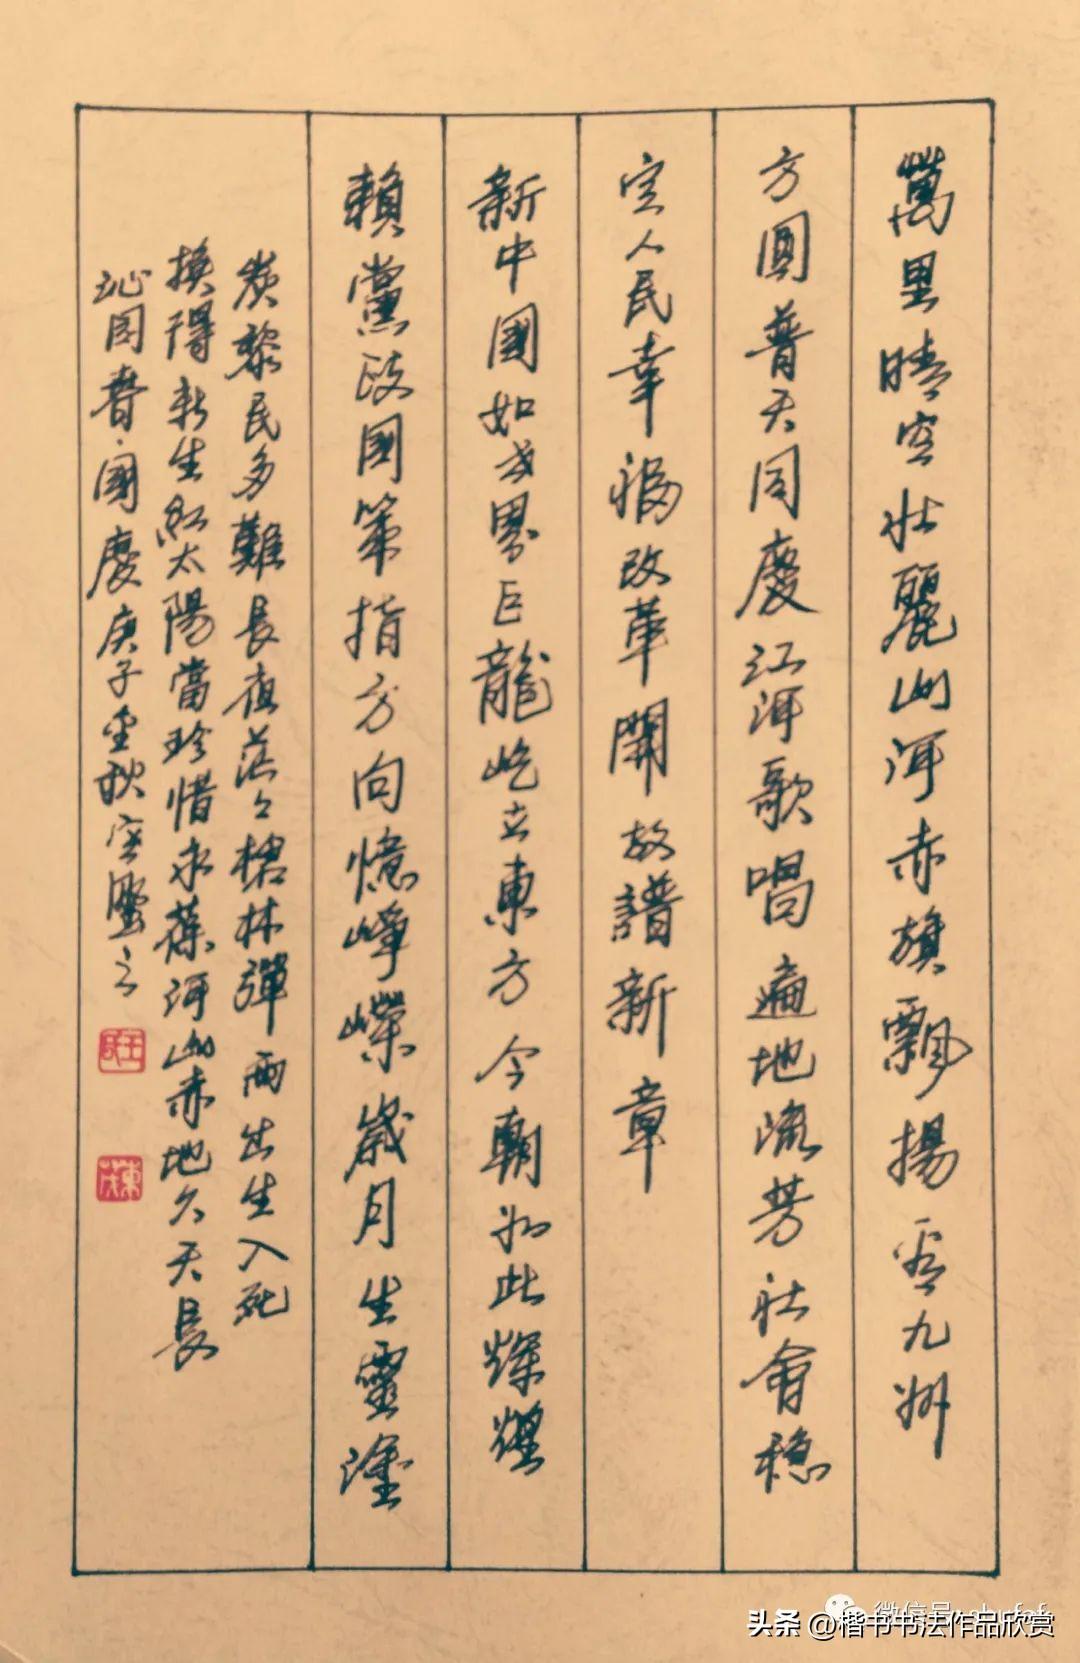 萬里晴空壯麗山河赤旗飄揚看九州
方圓普天同慶江河歌唱遍地流芳社會穩
定人民幸福改革開放譜新章
新中國如世界巨龍屹立東方今朝如此輝煌
賴黨政國策指方向憶崢嶸歲月生靈塗
炭黎民多難長夜茫々槍林彈雨出生入死
換得新生紅太陽當珍惜永葆河山赤地久天長
沁園春·國慶庚子金秋
头条@楷书书法作品欣赏
微信号